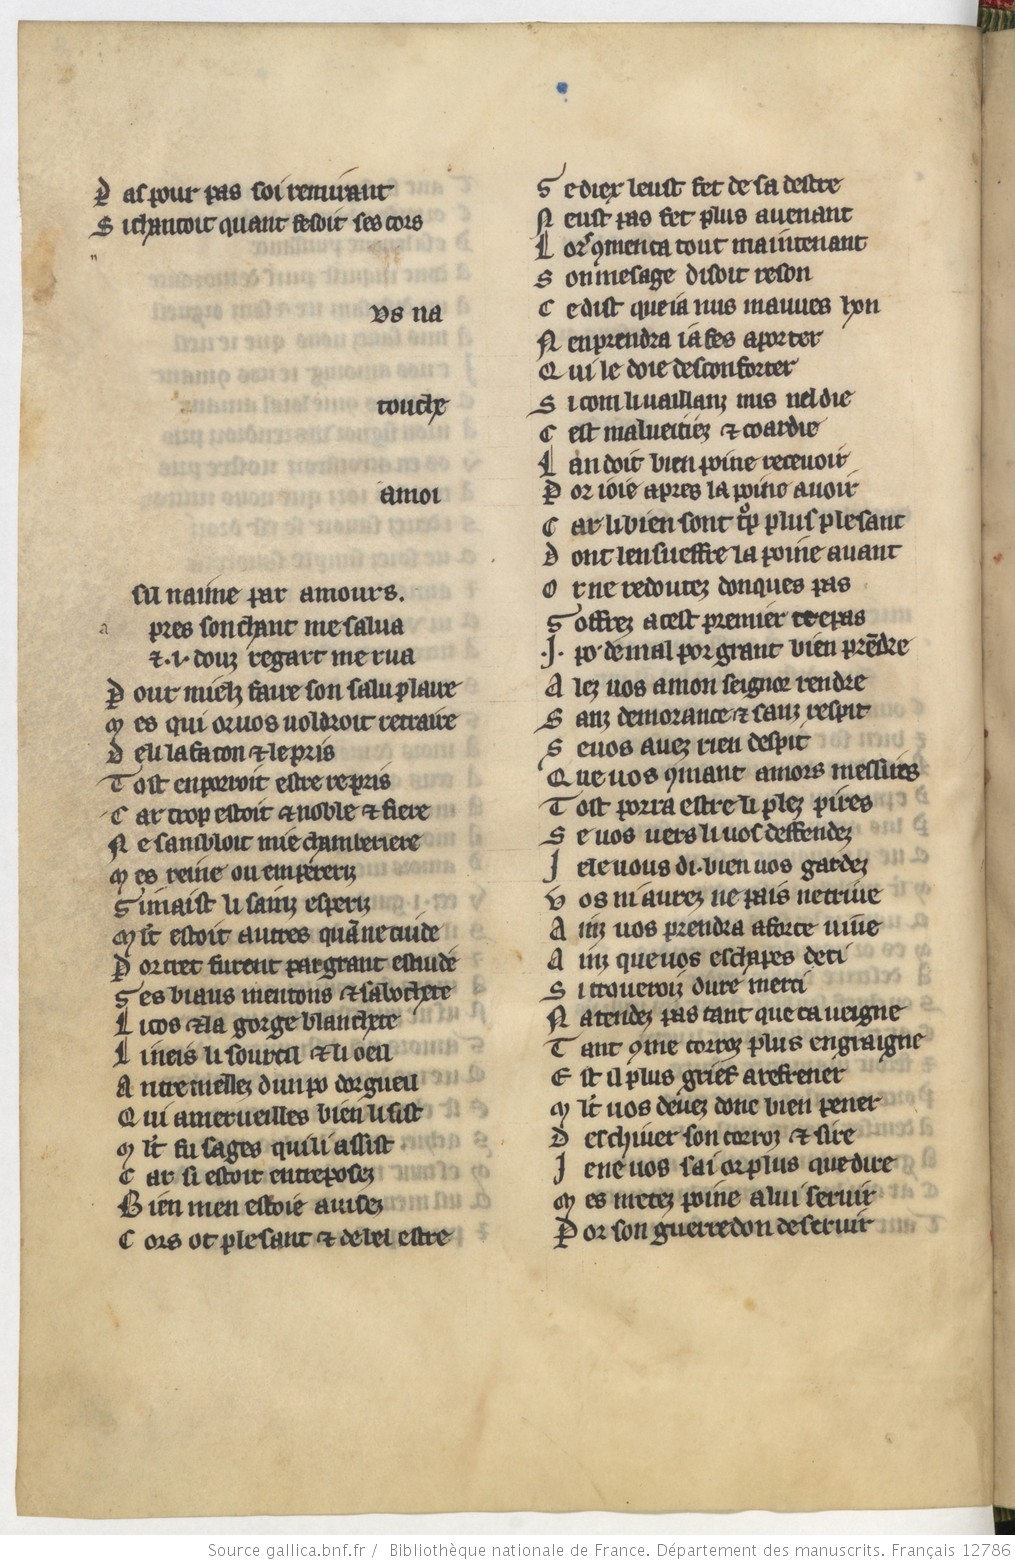 P as pour pas soi remirant
S i chantoit quant fesoit ses cors
vs na
touche
amoi
sil naime par amours.
pres son chant me salua
⁊ .i. douz regart me rua
P our mielz faire son salu plaire
M es qui or vos voldroit retraire
D e li la facon ⁊ le pris
T ost en porroit estre repris
C ar trop estoit ⁊ noble ⁊ fiere
N e sanbloit mie chamberiere
M es reine ou empereriz
S imaist li sainz esperiz
M lt estoit autres quā ne cuide
P ortret furent par grant estuide
S es biaus mentons ⁊ sa bochete
L i cos ⁊ la gorge blanchete
L i neis li sourcil ⁊ li oeil
A ntremellez dun po dorgueil
Q ui a merveilles bien li sist
M lt fu sages qui li assist
C ar si estoit entreposez
B ien men estoie avisez
C ors ot plesant ⁊ de lei estre
S e diex leust fet de sa destre
N eust pas fet plus avenant
L ors ꝯmenca tout maintenant
S on mesage disoit reson
C e dist que ia nus mauves hon
N en prendra ia fes a porter
Q ui le doie desconforter
S i com li vaillanz nus nel die
C est malveitiez ⁊ coardie
L an doit bien poine recevoir
P or ioie apres la poine avoir
C ar li bien sont tp plus plesant
D ont len sueffre la poine avant
O r ne redoutez donques pas
S offrez a cest premier trepas
.I. po de mal por grant bien prēdre
A lez vos a mon seignor rendre
S anz demorance ⁊ sanz respit
S e vos avez rien despit
Q ue vos ꝯmant amors messires
T ost porra estre li plez pires
S e vos vers li vos deffendez
I e le vous di. bien vos gardez
V os ni aurez ne pais ne trive
A inz vos prendra a force vive
A inz que vos eschapes de ci
S i troveroiz dure merci
N atendez pas tant que ca veigne
T ant ꝯme corroz plus engraigne
E st il plus griés a refrener
M lt vos devez donc bien pener
D eschiver son corroz ⁊ sire
I e ne vos sai or plus que dire
M es metez poine a lui servir
P or son guerredon deservir
Source gallica.bnf.fr / Bibliothèque nationale de France. Département des manuscrits. Français 12786